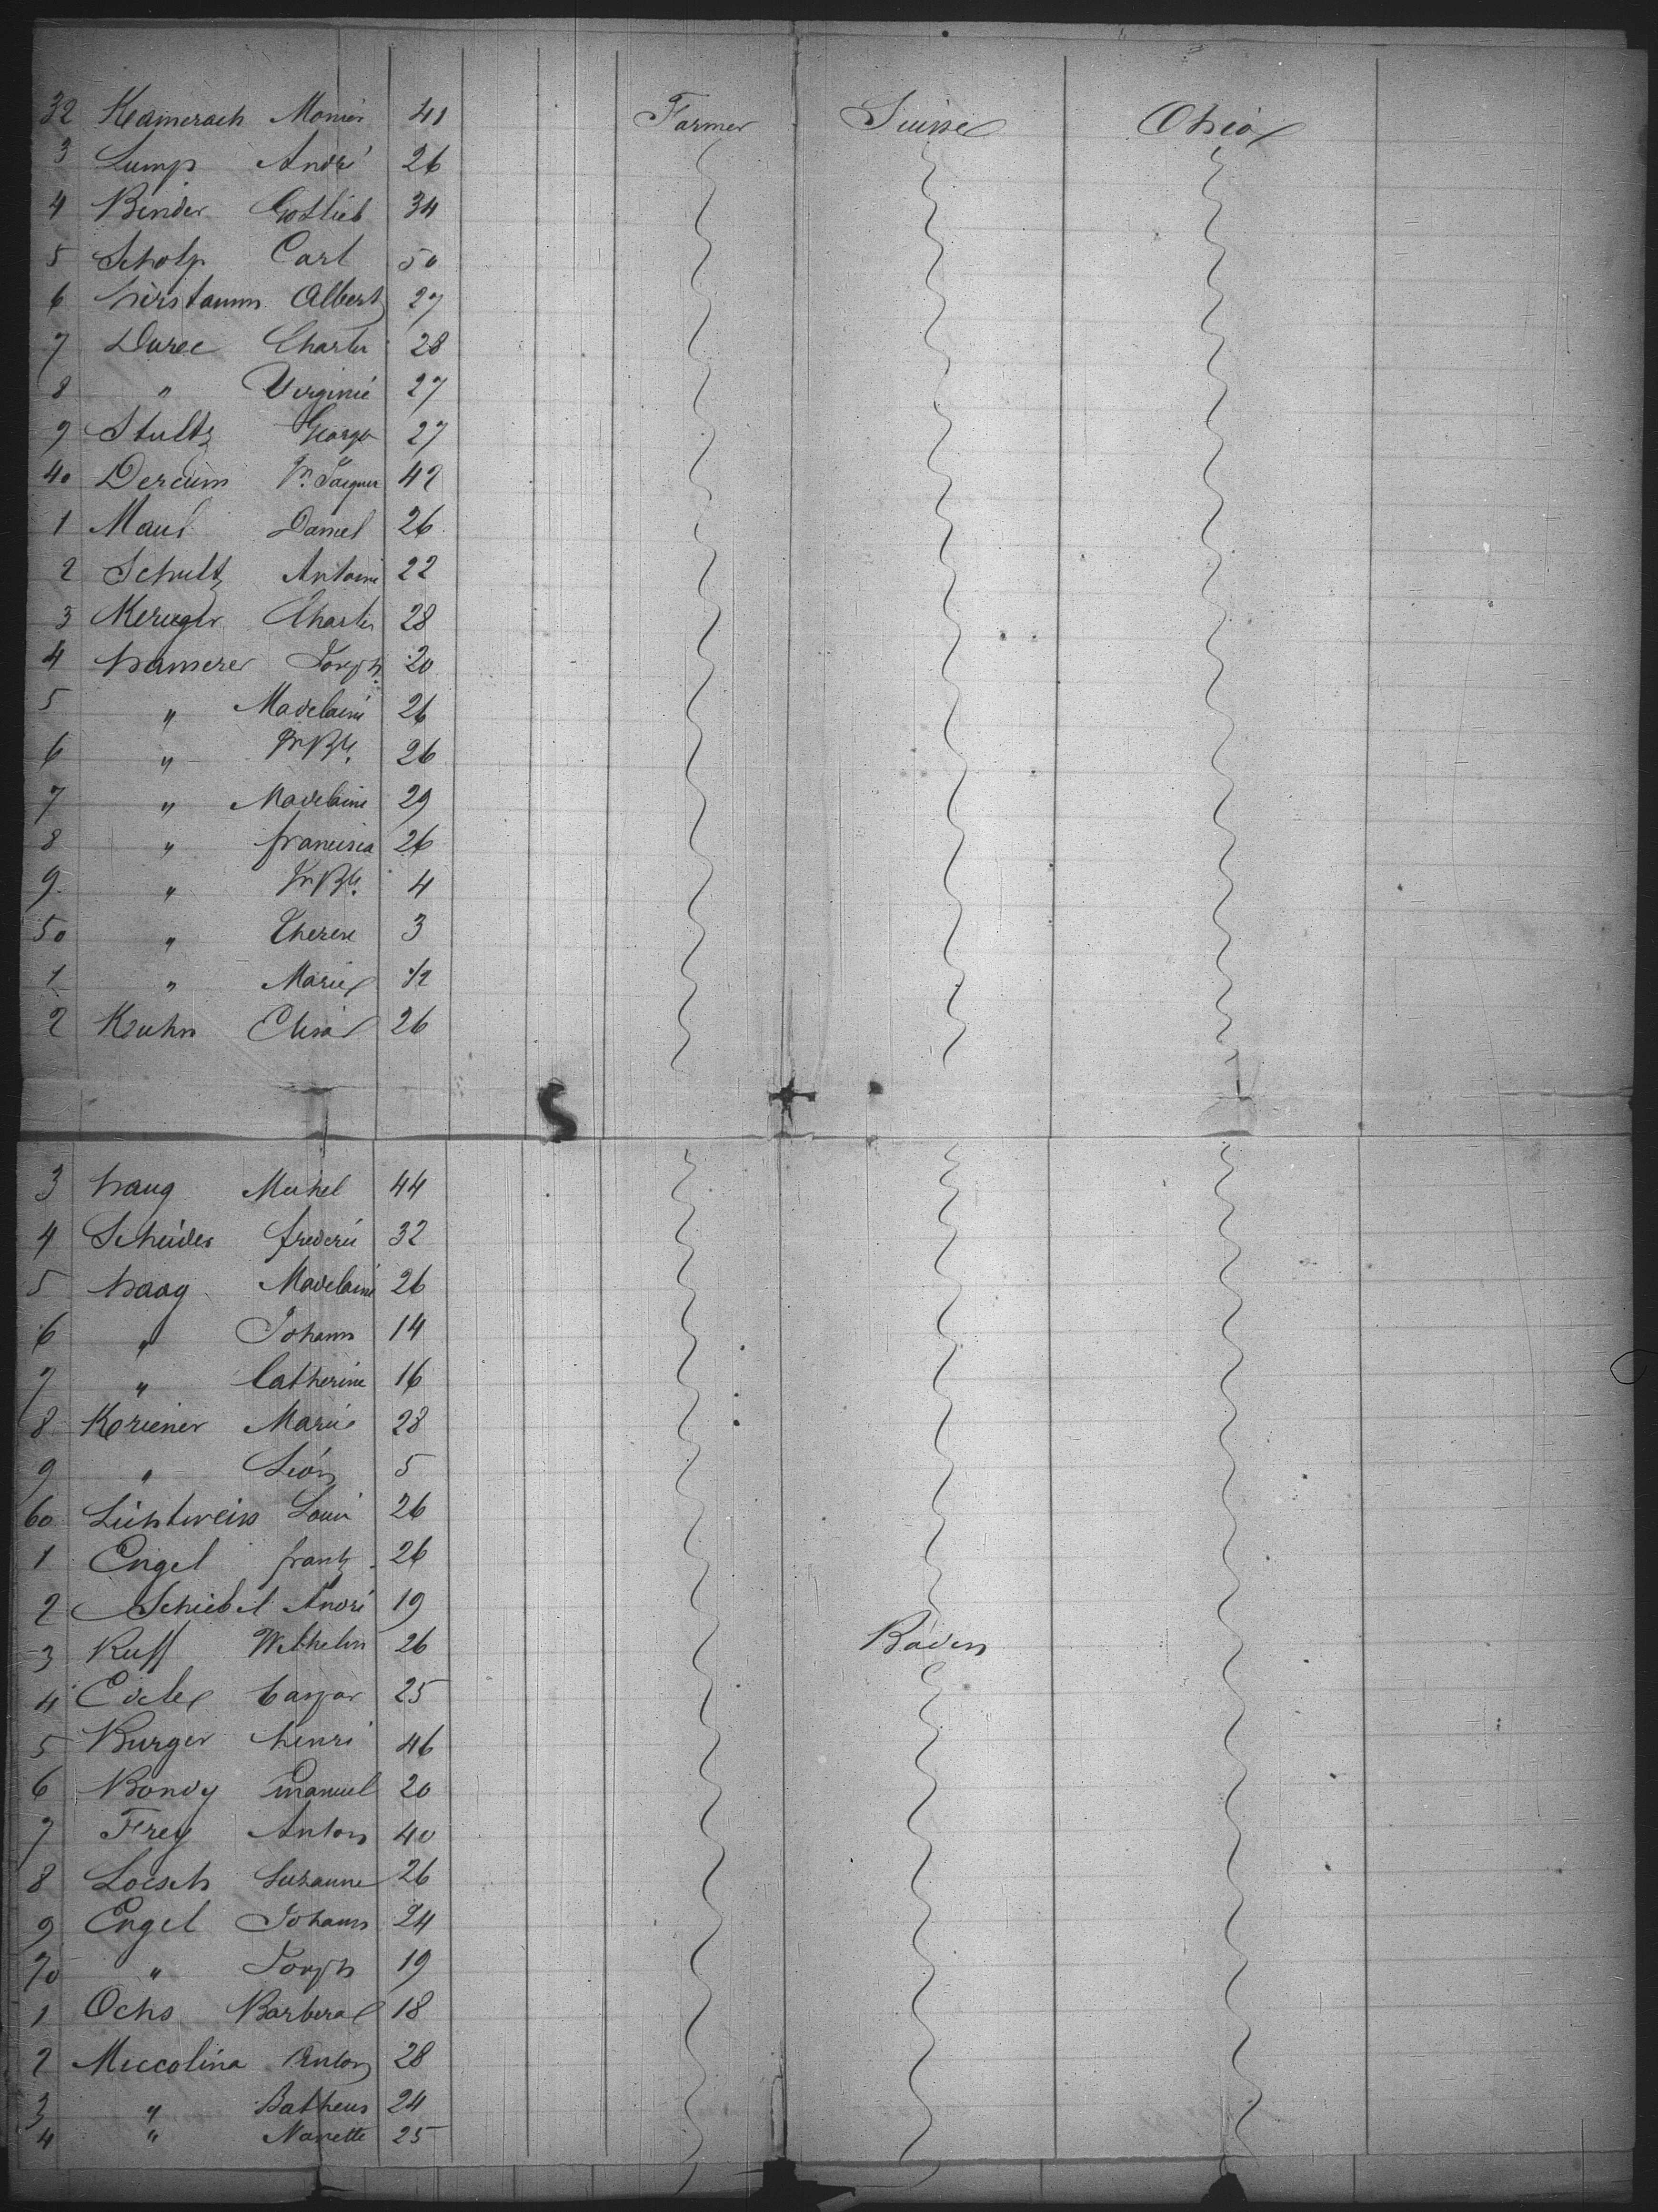 32 Kamerach Monier 41 Farmer Suisse Ohio
3 Lump André 26
4 Binder Gottlieb 34
5 Scholp Carl 50
6 hirstamm Albert 27
7 Durec Charles 28
8 " Virginie 27
9 Stultz George 27
40 Dercum Jn. Jacques 42
1 Maul Daniel 26
2 Schultz Antoine 22
3 Kerugler Charles 28
4 hamerer Joseph 20
5 " Madelaine 26
6 " Jn Bte. 26
7 " Madelaine 29
8 " francisca 26
9 " Jn Bte. 4
50 " Therese 3
1 " Marie 1/2
2 Kuhn Elisa 26
S
3 haug Michel 44
4 Scheider frederic 32
5 haag Madelaine 26
6 " Johann 14
7 " Catherine 16
8 Koriener Marie 28
9 " Léon 5
60 Lichtweiss Louis 26
1 Engel frantz 26
2 Schiebel André 19
3 Ruff Wilhelm 26 Baden
4 Eckle Caspar 25
5 Burger henri 46
6 Bondy Emanuel 20
7 Frey Anton 40
8 Loesch Suzanne 26
9 Engel Johann 24
70 " Joseph 19
1 Ochs Barbera 18
2 Miccolina Anton 28
3 " Batheus 24
4 " Nanette 25